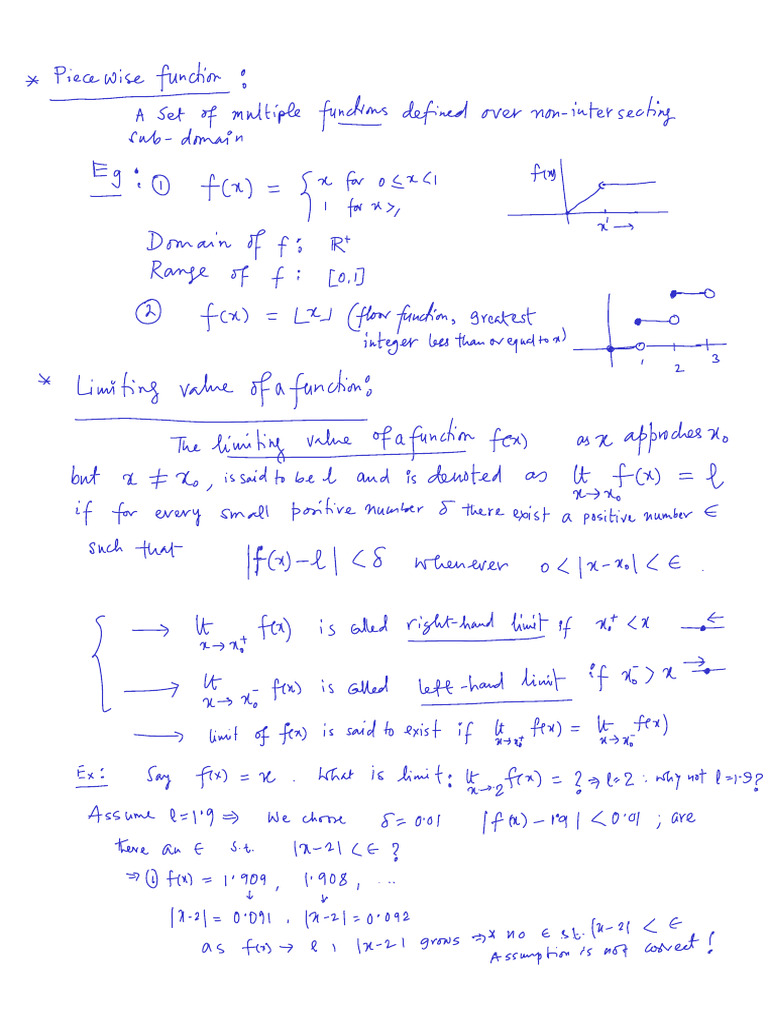 * Piecewise function :
A set of multiple functions defined over non-intersecting
sub-domain
Eg : ① f(x) = { x for 0 ≤ x < 1
1 for x ≥ 1
f(x)
1
x →
Domain of f : ℝ⁺
Range of f : [0,1]
② f(x) = ⌊x⌋ (floor function, greatest
integer less than or equal to x)
1 2 3
* Limiting value of a function :
The limiting value of a function f(x) as x approches x₀
but x ≠ x₀, is said to be l and is denoted as lt x→x₀ f(x) = l
if for every small positive number δ there exist a positive number ∈
such that |f(x) - l| < δ whenever 0 < |x - x₀| < ∈ .
→ lt x→x₀⁺ f(x) is called right-hand limit if x₀⁺ < x
→ lt x→x₀⁻ f(x) is called left-hand limit if x₀⁻ > x
→ limit of f(x) is said to exist if lt x→x₀⁺ f(x) = lt x→x₀⁻ f(x)
Ex : Say f(x) = x . What is limit : lt x→2 f(x) = ? ⇒ l = 2 : why not l = 1.9?
Assume l = 1.9 ⇒ We choose δ = 0.01 |f(x) - 1.9| < 0.01 ; are
there an ∈ s.t. |x-2| < ∈ ?
⇒ ① f(x) = 1.909 , 1.908 , ...
↓ ↓
|x-2| = 0.091 , |x-2| = 0.092
as f(x) → l , |x-2| grows ⇒ no ∈ s.t. |x-2| < ∈
Assumption is not correct !